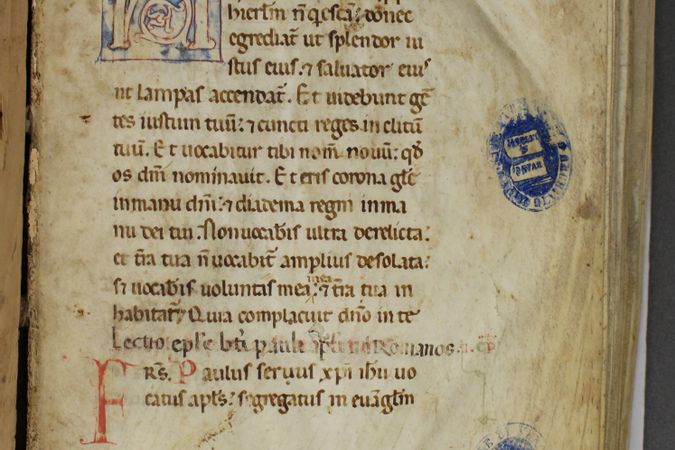 hierlm̄ n̄ q̇escā; donec
egrediat̄ ut splendor iu
stus eius. ⁊ saluator eiuˢ
ut lampas accendat̄. Et uidebunt gē
tes iustum tuū; ⁊ cuncti reges inclitū
tuū. Et uocabitur tibi nom̄ nouū; qḋ
os dn̄i nominauit. Et eris corona gl̄e
inmanu dn̄i; ⁊ diadema regni inma
nu dei tui. Non uocab̄is ultra derelicta;
et t̄ra tua n̄ uocabit̄ amplius desolata;
s; uocab̄is voluntas mea inea; ⁊ t̄ra tua in
habitat̄; Quia complacuit dn̄o in te
Lectio epl̄e bt̄i pauli apl̄i ad Romanos.
F RS. Paulus seruus xp̄i ihū uo
catus apl̄s; segregatus in euāgl̄m